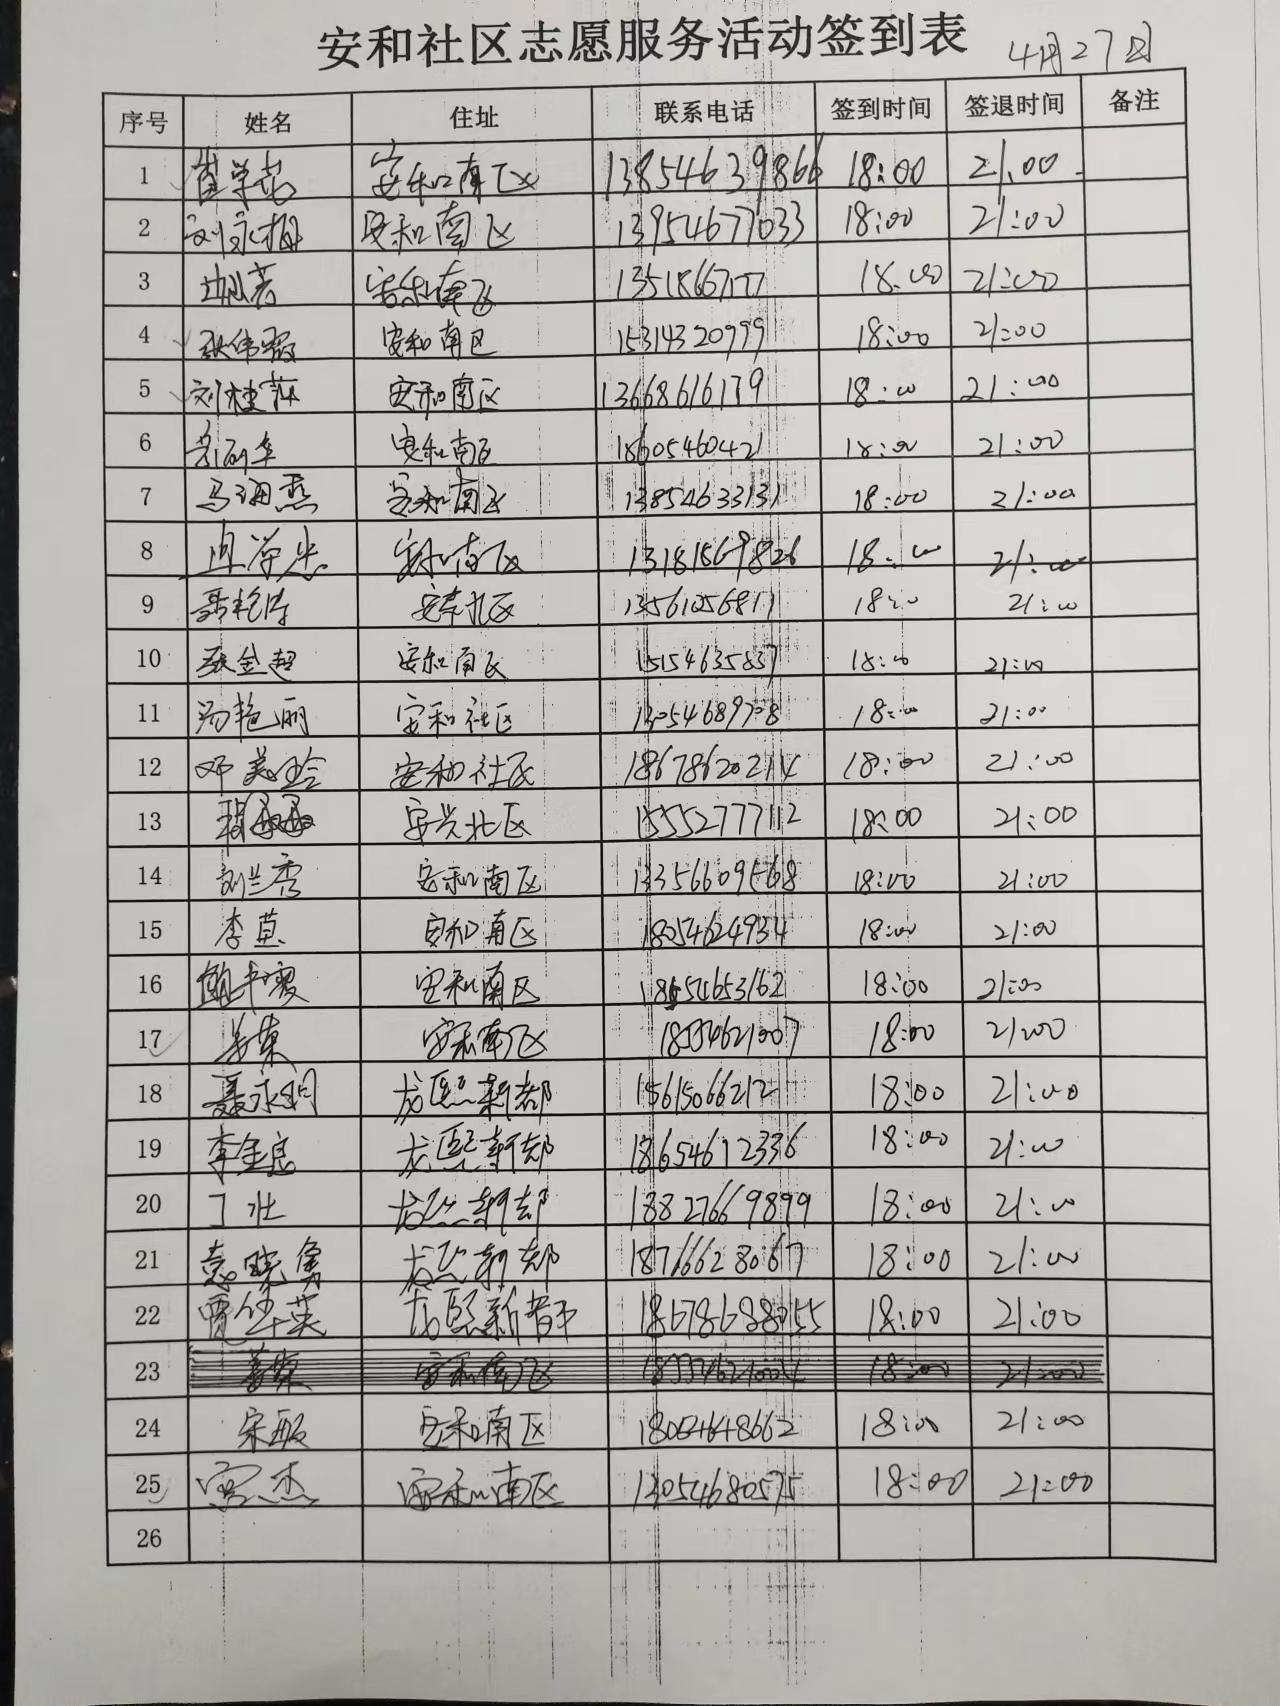 安和社区志愿服务活动签到表
4月27日
序号 姓名 住址 联系电话 签到时间 签退时间 备注
1 安和南区 13854639866 18:00 21:00
2 刘永梅 安和南区 13954677033 18:00 21:00
3 安和南区 18:00 21:00
4 安和南区 15314320999 18:00 21:00
5 刘桂萍 安和南区 13668616179 18:00 21:00
6 安和南区 18605460421 18:00 21:00
7 马海燕 安和南区 13854633131 18:00 21:00
8 安和南区 13181569826 18:00 21:00
9 北区 13561056811 18:00 21:00
10 张金超 安和南区 15154635837 18:00 21:00
11 冯艳丽 安和社区 13054689708 18:00 21:00
12 邓美玲 安和社区 18678620214 18:00 21:00
13 安兴北区 15552777112 18:00 21:00
14 刘兰秀 安和南区 13356609568 18:00 21:00
15 李莫 安和南区 18254624934 18:00 21:00
16 安和南区 18654653162 18:00 21:00
17 姜东 安和南区 18:00 21:00
18 聂永明 龙熙新都 15615066212 18:00 21:00
19 李金良 龙熙新都 18654612336 18:00 21:00
20 丁壮 龙熙新都 18827669899 18:00 21:00
21 袁晓勇 龙熙新都 18766628067 18:00 21:00
22 贾继英 龙熙新都 18678688055 18:00 21:00
23 安和南区 18:00 21:00
24 宋敏 安和南区 18:00 21:00
25 宫杰 安和南区 13054680575 18:00 21:00
26